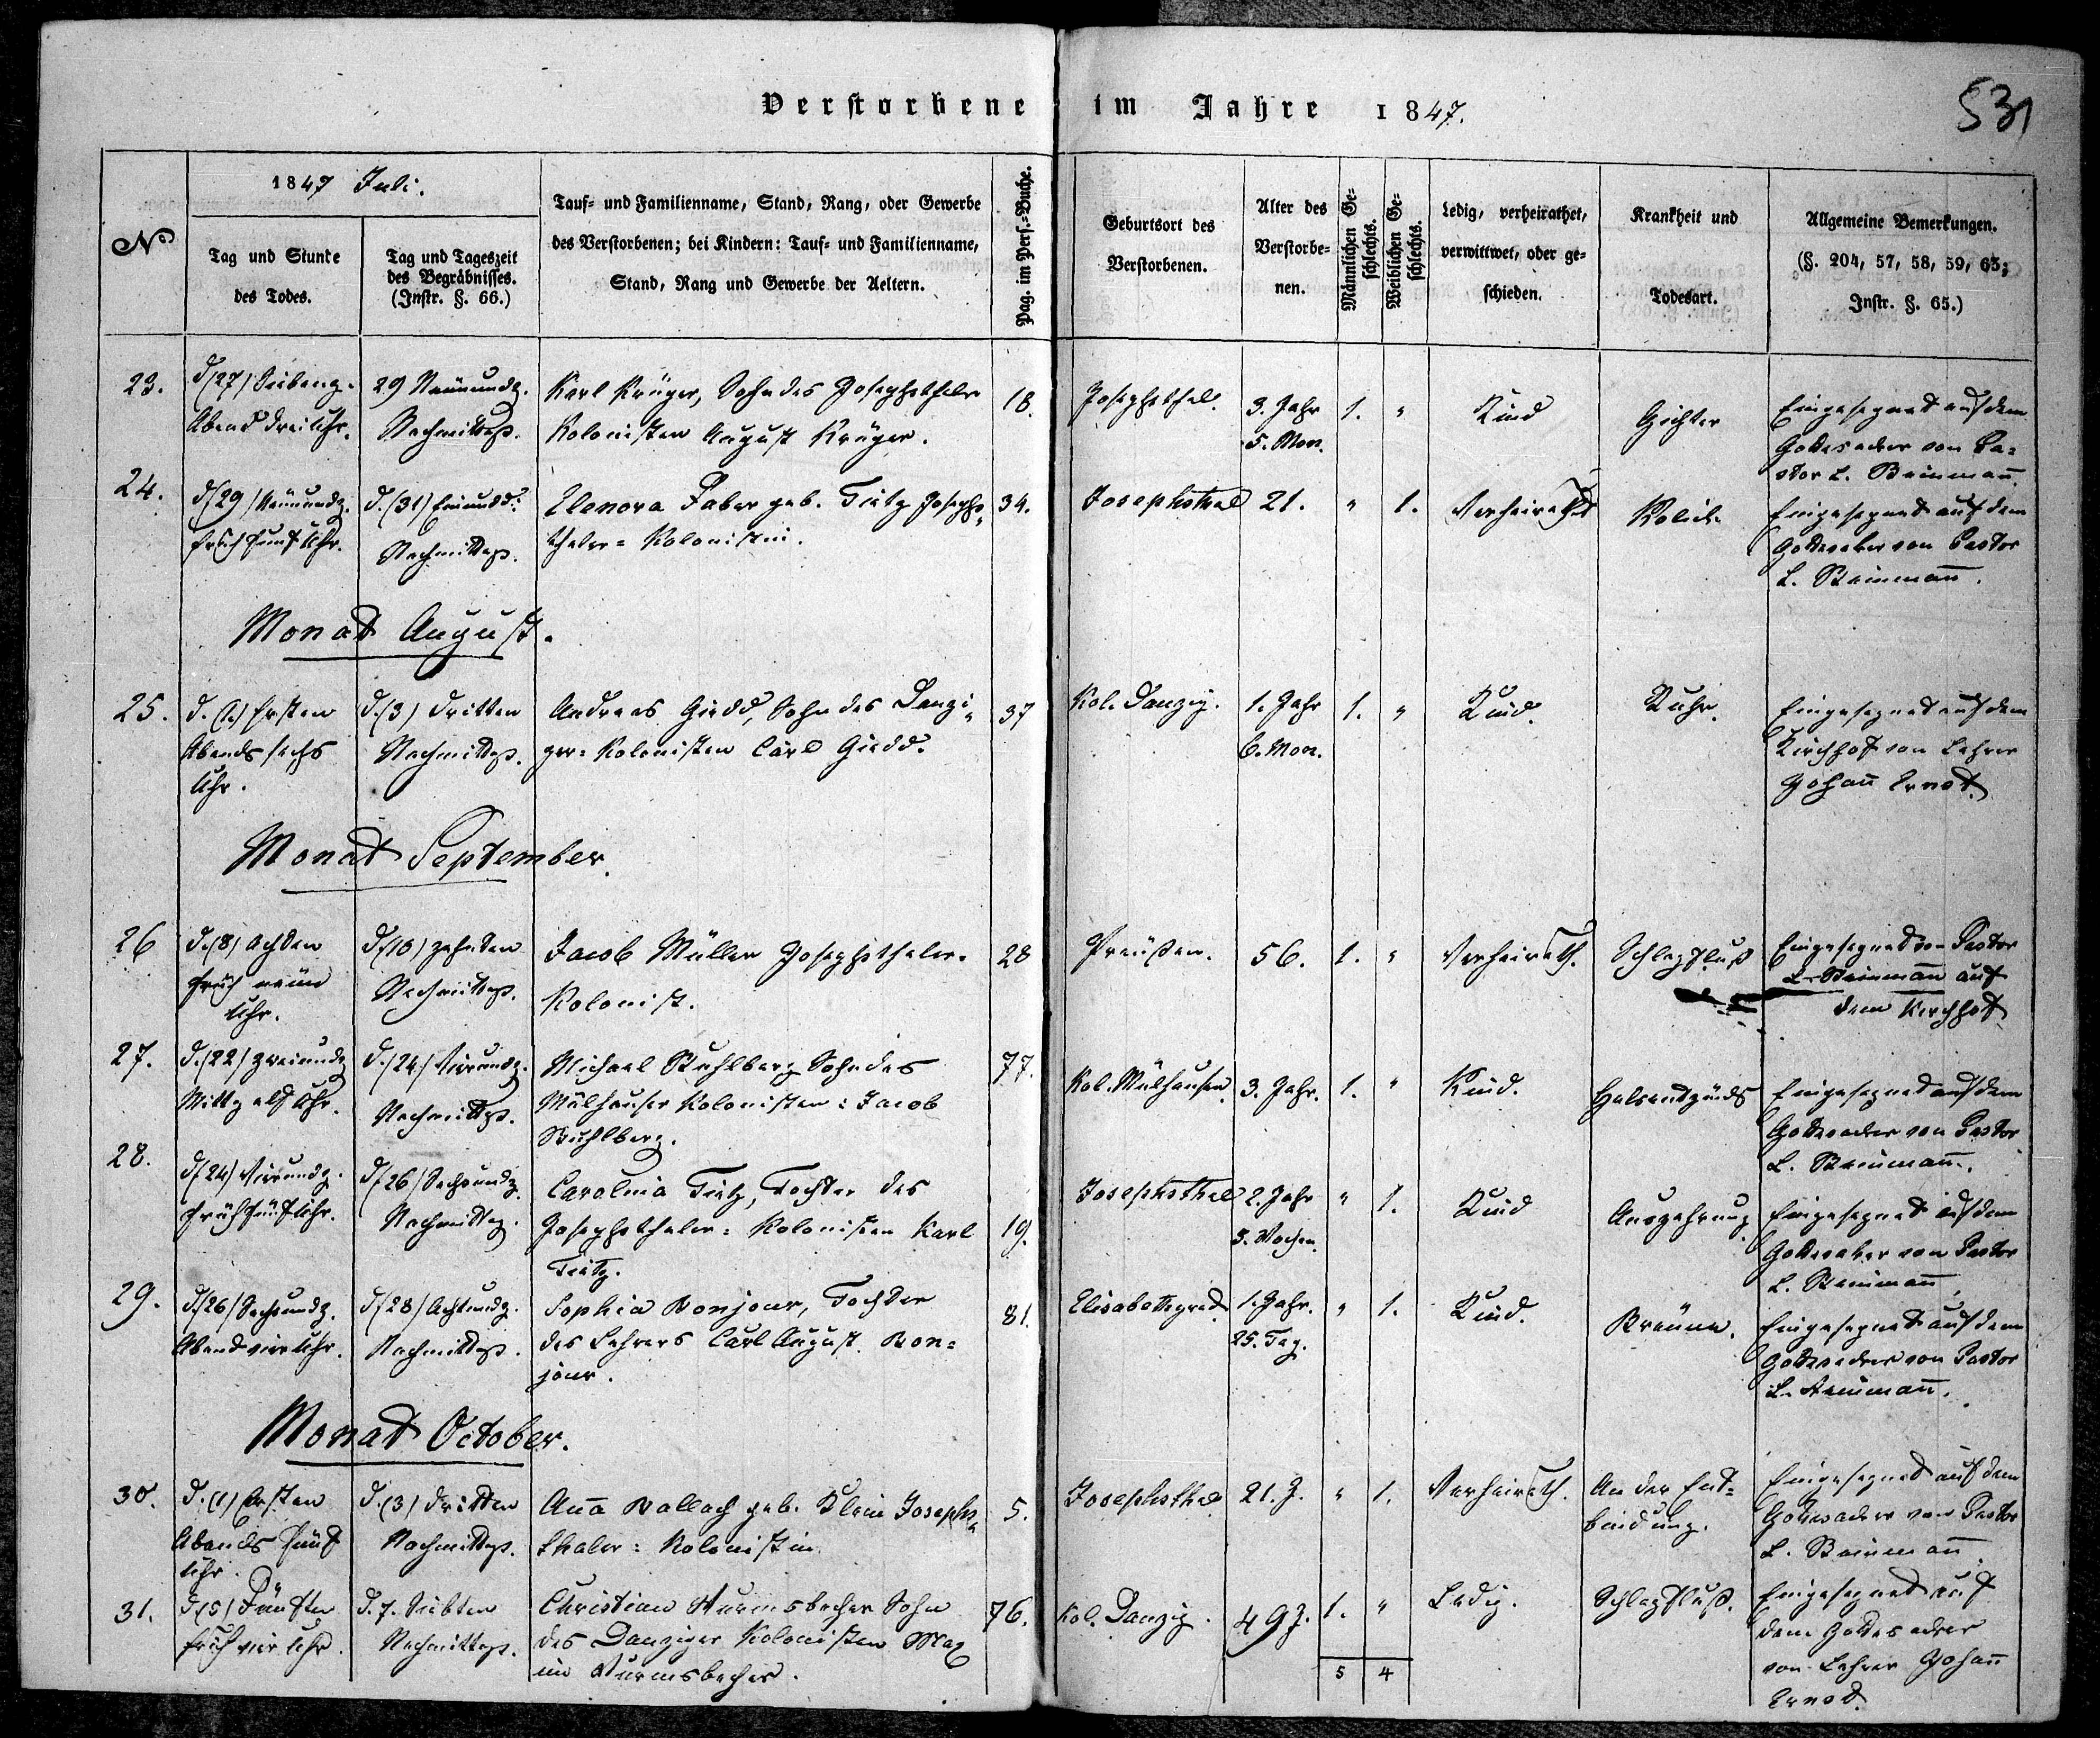 Verstorbene im Jahre 1847.
531
No
1847 Juli.
Tag und Stunde
des Todes.
Tag und Tageszeit
des Begräbnisses.
(Instr. §. 66.)
Tauf- und Familienname, Stand, Rang, oder Gewerbe
des Verstorbenen; bei Kindern: Tauf- und Familienname,
Stand, Rang und Gewerbe der Aeltern.
Pag. im Pers.-Buche.
Geburtsort des
Verstorbenen.
Alter des
Verstorbe-
nen.
Männlichen Ge-
schlechts.
Weiblichen Ge-
schlechts.
Ledig, verheirathet,
verwittwet, oder ge-
schieden.
Krankheit und
Todesart.
Allgemeine Bemerkungen.
(§. 204, 57, 58, 59, 63;
Instr. §. 65.)
23.
d (27) Siebenz.
Abend drei Uhr.
29 Neunundz.
Nachmittags.
Karl Krüger, Sohn des Josephsthaler
Kolonisten August Krüger.
18.
Josephsthal.
3. Jahr
5. Mon.
1. "
Kind
Gichter
Eingesegnet auf dem
Gottesacker von Pa-
stor L. Steinmann.
24.
d (29) Neunundz.
früh fünf Uhr.
d. (31) Einundd.
Nachmittags.
Elenora Faber geb. Tietz Josephs-
thaler = Kolonistin.
34.
Josephsthal
21.
" 1.
Verheirathet
Kolick
Eingesegnet auf dem
Gottesacker von Pastor
L. Steinmann.
Monat August.
25.
d. (1.) Ersten
Abends sechs
Uhr.
d. (3) Dritten
Nachmittags.
Andreas Giedd, Sohn des Danzi-
ger = Kolonisten Carl Giedd.
37
Kol. Danzig.
1. Jahr
6. Mon.
1. "
Kind.
Ruhr.
Eingesegnet auf dem
Kirchhof von Lehrer
Johann Ernst.
Monat September.
26
d. (8) Achten
früh neun
Uhr.
d. (10) zehnten
Nachmittags.
Jacob Müller Josephsthaler-
Kolonist.
28
Preußen.
56.
1. "
Verheirath.
Schlagfluß
Eingesegnet von Pastor
L. Steinmann auf
dem Kirchhof
27.
d. (22) zweiundz
Mittg elf Uhr.
d. (24) Vierundz.
Nachmittgs.
Michael Stuhlberg Sohn des
Mülhauser Kolonisten: Jacob
Stuhlberg.
77.
Kol. Mülhausen
3. Jahr.
1. "
Kind.
Halsentzünds
Eingesegnet auf dem
Gottesacker von Pastor
L. Steinmann.
28.
d (24) Vierundz.
früh fünf Uhr.
d (26) Sechsundz.
Nachmittag.
Carolina Tietz, Tochter des
Josephsthaler = Kolonisten Karl
Tietz.
19.
Josephsthal
2. Jahr
3. Wochen.
" 1.
Kind
Auszehrung
Eingesegnet auf dem
Gottesacker von Pastor
L. Steinmann
29.
d (26) Sechsundz.
Abend vier Uhr.
d (28) Achtundz.
Nachmittags.
Sophia Bonjour, Tochter
des Lehrers Carl August Bon=
jour.
81.
Elisabethgrad
1. Jahr.
25. Tag.
" 1.
Kind.
Bräune.
Eingesegnet auf dem
Gottesacker von Pastor
L. Steinmann.
Monat October.
30.
d. (1) Ersten
Abends fünf
Uhr.
d. (3) Dritten
Nachmittags.
Anna Wallach geb. Klein Josephs-
thaler = Kolonistin
5.
Josephsthal
21. J.
" 1.
Verheirath.
An der Ent=
bindung.
Eingesegnet auf dem
Gottesacker von Pastor
L. Steinmann.
31.
d (5) Fünften
früh vier Uhr.
d. 7. Siebten
Nachmittags.
Christian Wurmsbecher Sohn
des Danziger Kolonisten Max
im Wurmsbecher.
76.
Kol. Danzig.
49 J.
1. "
Ledig.
Schlagfluß.
Eingesegnet auf
dem Gottesacker
von Lehrer Johann
Ernst.
5 4